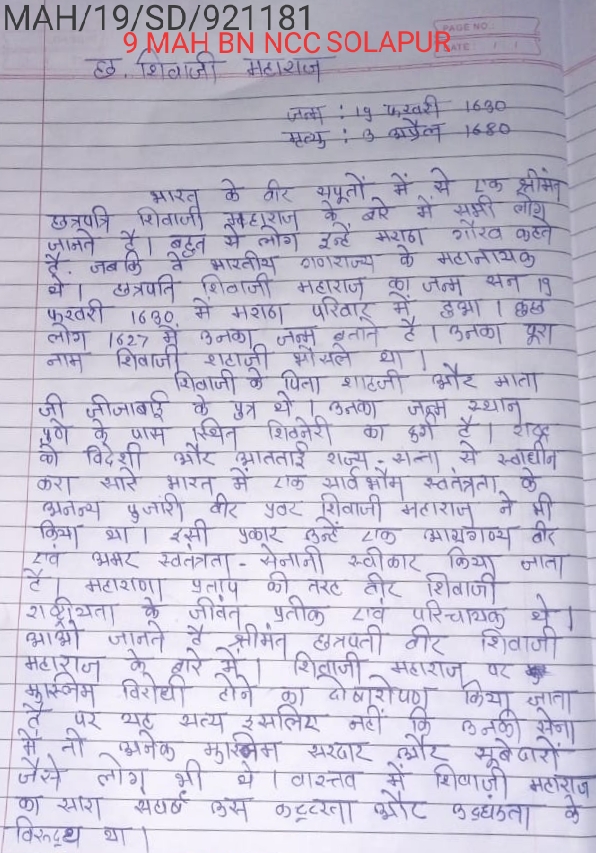 MAH/19/SD/921181
9 MAH BN NCC SOLAPUR
PAGE NO.:
DATE / /
छ. शिवाजी महाराज
जन्म : 19 फरवरी 1630
मृत्यु : 3 अप्रैल 1680
भारत के वीर सपूतों में से एक श्रीमंत
छत्रपति शिवाजी महाराज के बारे में सभी लोग
जानते है । बहुत से लोग इन्हें मराठा गौरव कहते
है. जबकि वे भारतीय गणराज्य के महानायक
थे । छत्रपति शिवाजी महाराज का जन्म सन 19
फरवरी 1630 में मराठा परिवार में हुआ । कुछ
लोग 1627 में उनका जन्म बताते है । उनका पूरा
नाम शिवाजी शहाजी भोसले था ।
शिवाजी के पिता शाहजी और माता
जी जीजाबाई के पुत्र थे । उनका जन्म स्थान
पुणे के पास स्थित शिवनेरी का दुर्ग है । राष्ट्र
को विदेशी और आतताई राज्य - सत्ता से स्वाधीन
करा सारे भारत में एक सार्वभौम स्वतंत्रता के
अनन्य पुजारी वीर प्रवर शिवाजी महाराज ने भी
किया था । इसी प्रकार उन्हें एक वीर
एवं अमर स्वतंत्रता - सेनानी स्वीकार किया जाता
है । महाराणा प्रताप की तरह वीर शिवाजी
राष्ट्रीयता के जीवंत प्रतीक एवं परिचायक थे ।
आओ जानते है श्रीमंत छत्रपती वीर शिवाजी
महाराज के बारे में । शिवाजी महाराज पर
मुस्लिम विरोधी होने का दोषारोपण किया जाता
है पर यह सत्य इसलिए नहीं कि उनकी सेना
में तो अनेक मुस्लिम सरदार और सूबेदारों
जैसे लोग भी थे । वास्तव में शिवाजी महाराज
का सारा संघर्ष उस कट्टरता और के
विरूद्ध था ।